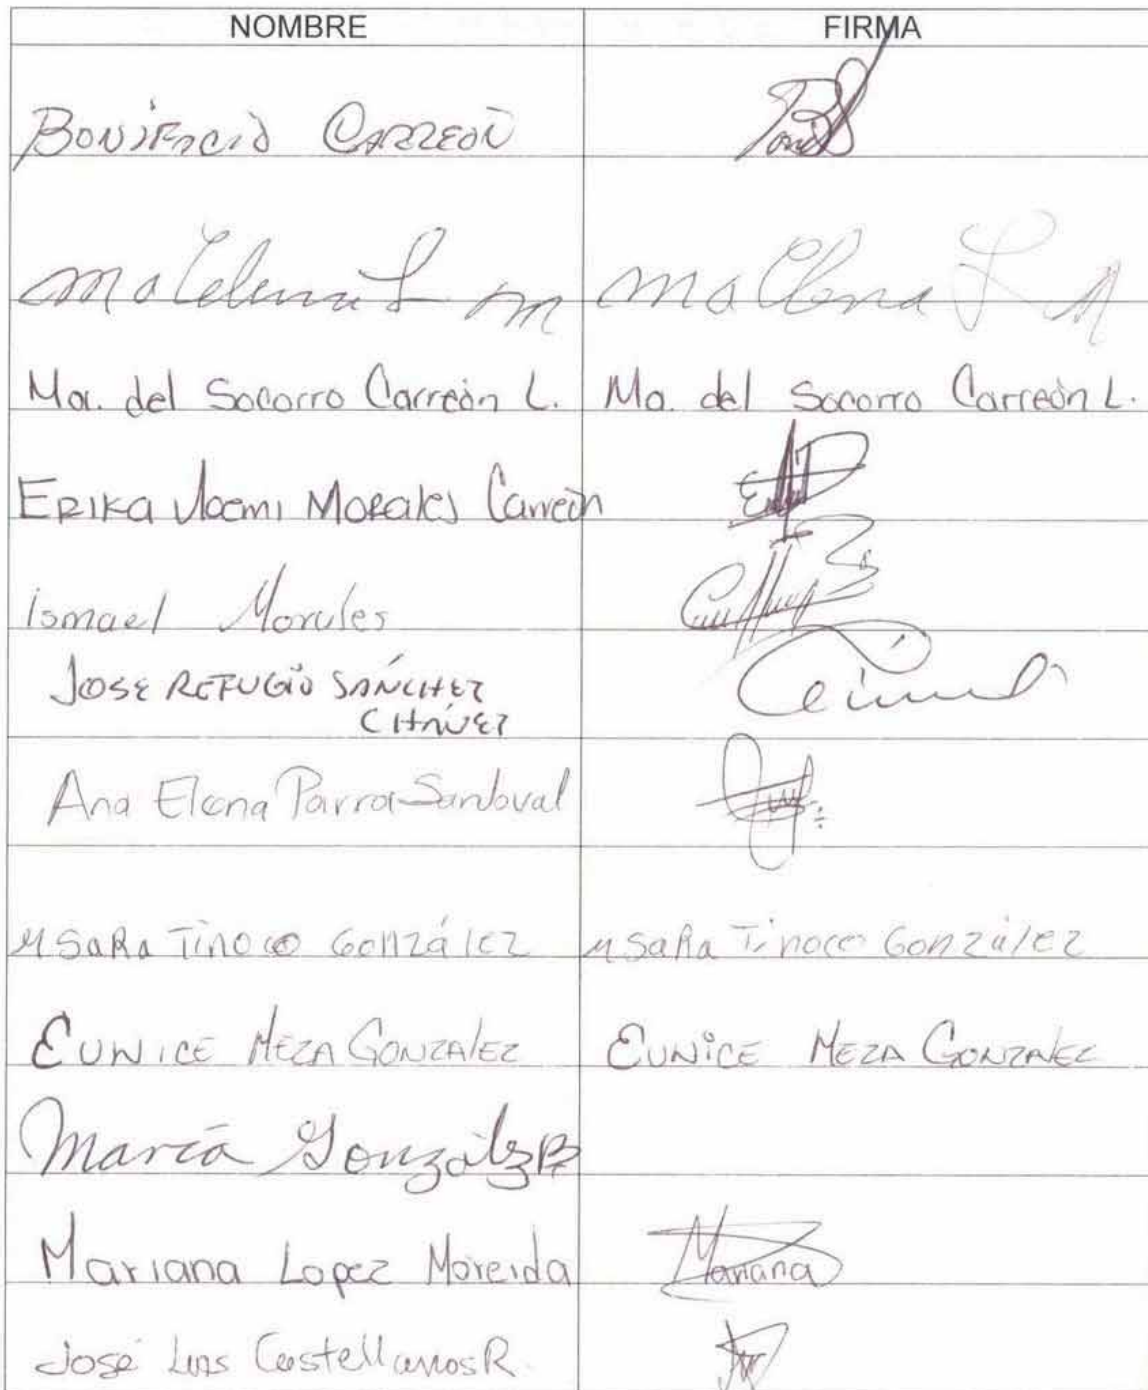 NOMBRE FIRMA
BONIFACIO CARREÓN
Ma Elena L M Ma Elena L M
Ma. del Socorro Carreón L. Ma. del Socorro Carreón L.
ERIKA Noemi MORALES Carreón
Ismael Morales
JOSE REFUGIO SÁNCHEZ
CHÁVEZ
Ana Elena Parra Sandoval
M SARA TINOCO GONZÁLEZ M SARA TINOCO GONZÁLEZ
EUNICE MEZA GONZALEZ EUNICE MEZA GONZALEZ
María González B
Mariana Lopez Moreida Mariana
José Luis Castellanos R.